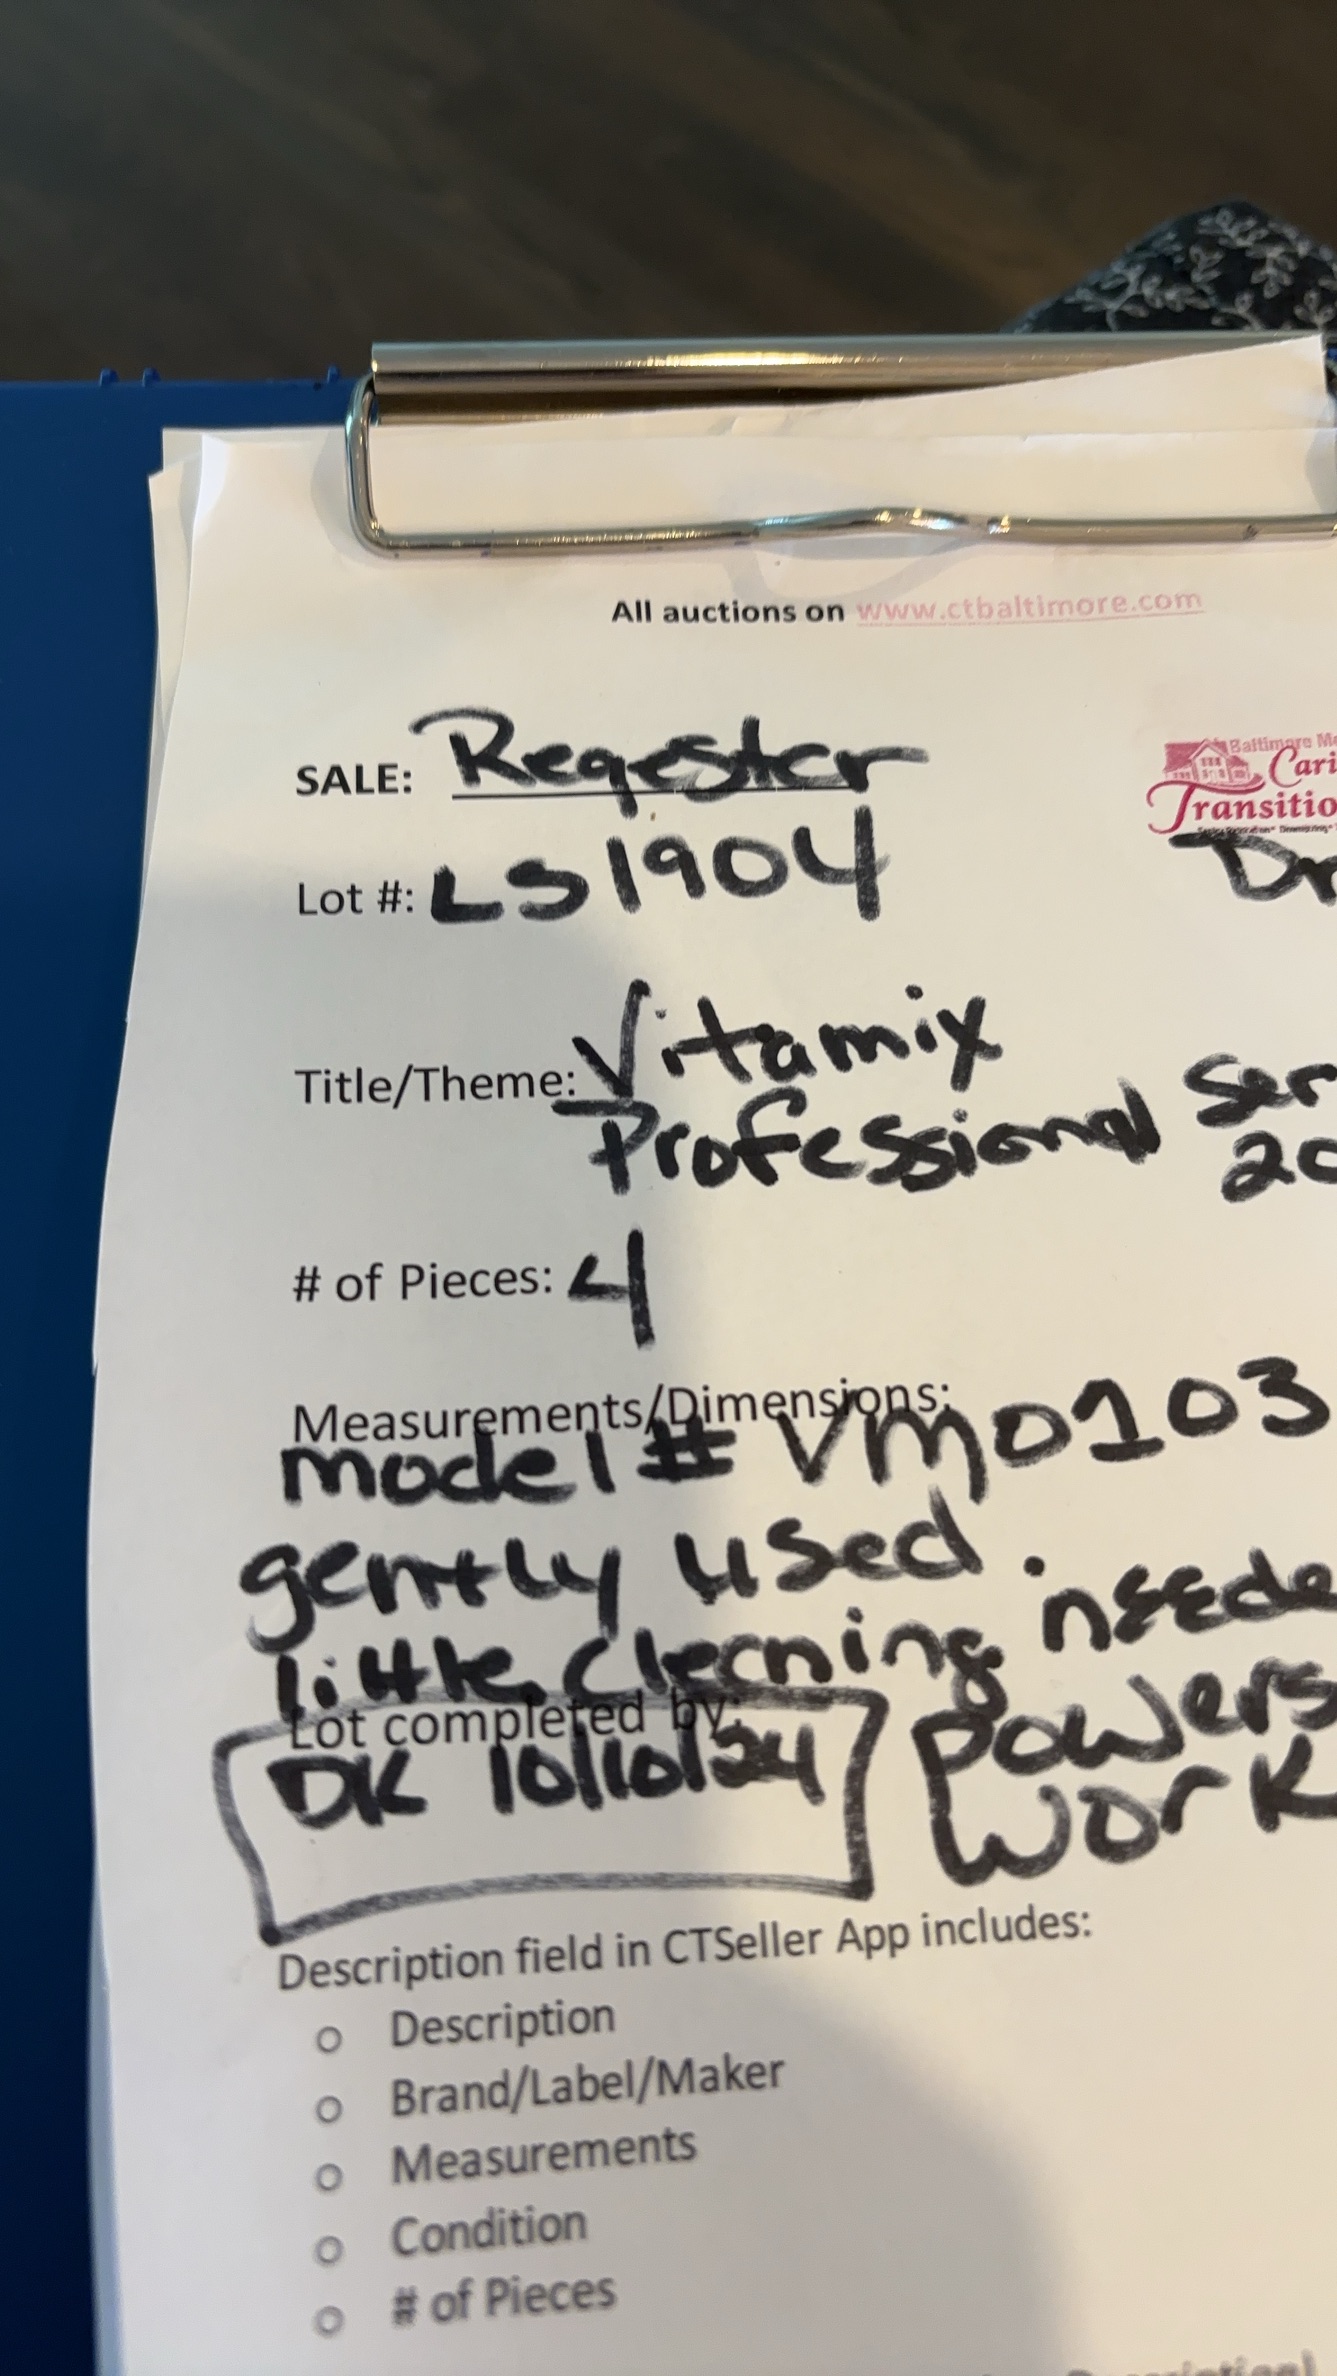 All auctions on www.ctbaltimore.com
SALE: Regester
Baltimore Me
Cari
Transitio
Lot #: LS1904
Dr
Title/Theme: Vitamix
Professional Ser
20
# of Pieces: 4
Measurements/Dimensions:
model # VM0103
gently used.
little cleaning neede
Lot completed by:
DK 10/10/24
powers
work
Description field in CTSeller App includes:
o Description
o Brand/Label/Maker
o Measurements
o Condition
o # of Pieces